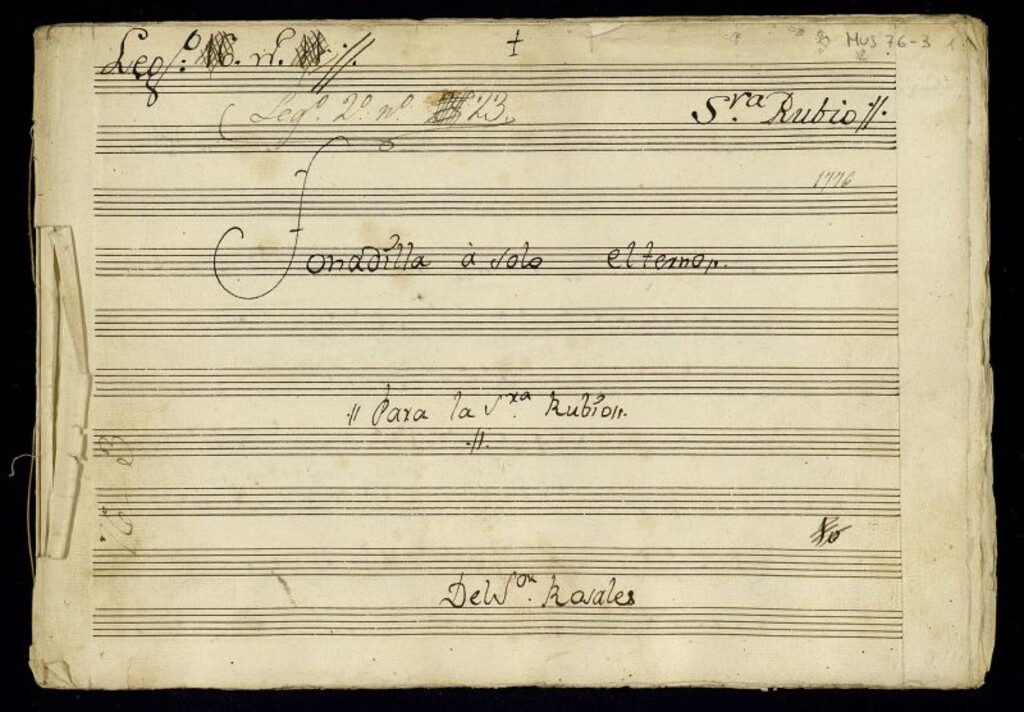 Legº. n.
†
MUS 76-3
Legº. 2º. nº. 23.
S.ra Rubio //.
1776
Tonadilla à solo
Para la S.ra Rubio //.
Del S.or Rosales